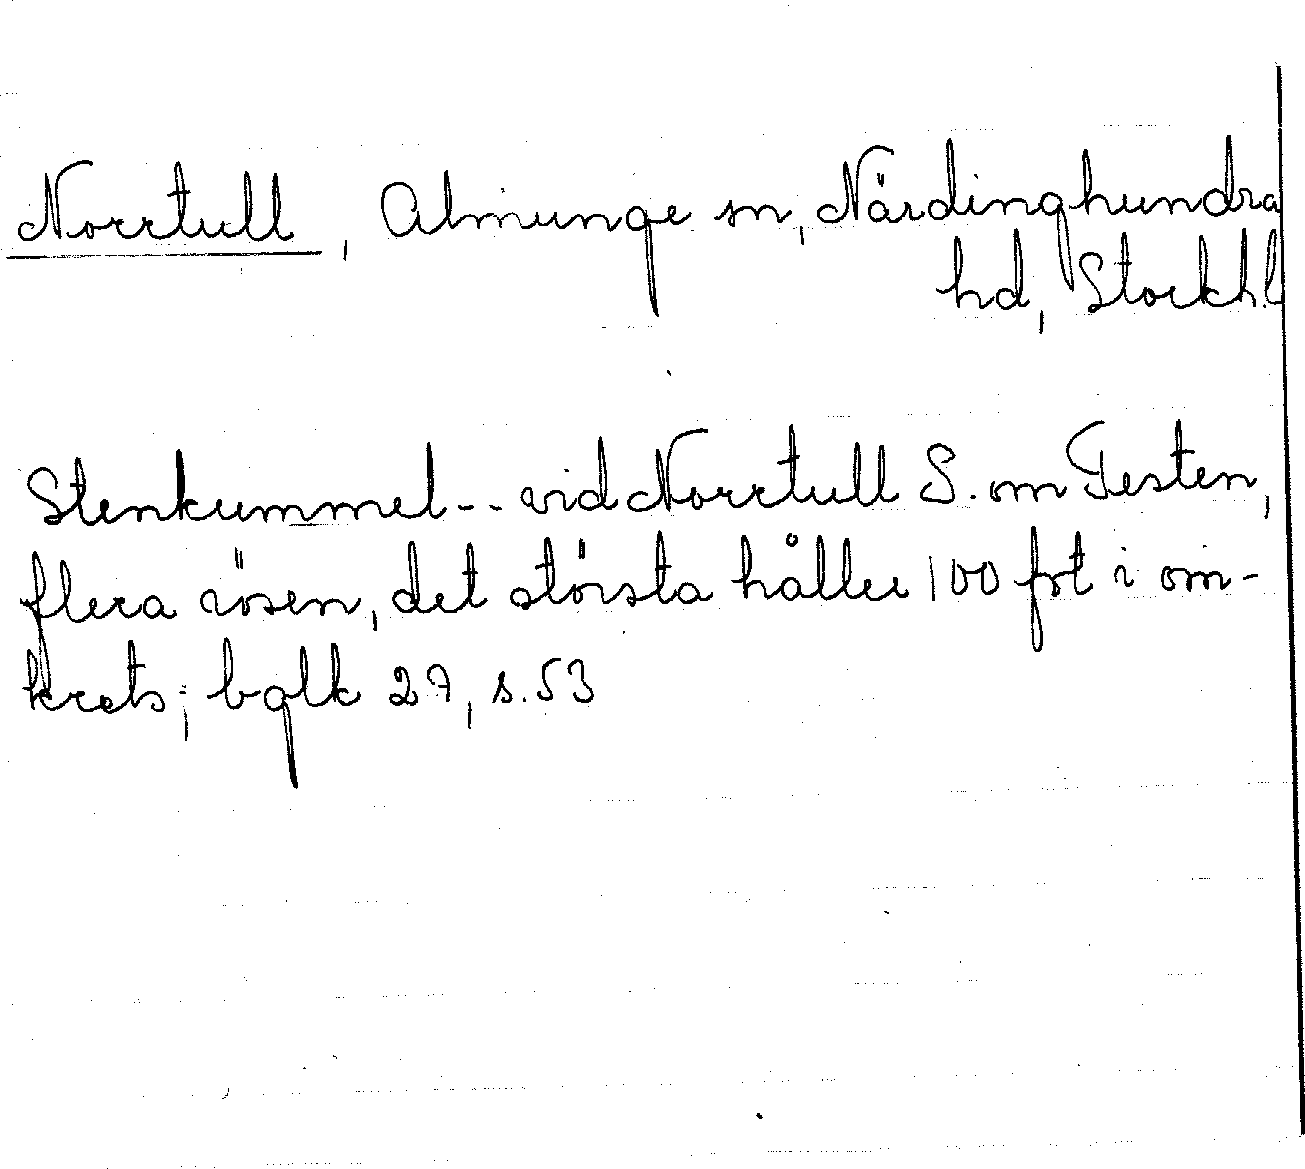 Norrtull, Almunge sn, Närdinghundra
hd, Stockh.l
Stenkummel-- vid Norrtull S. om Testen,
flera rösen, det största håller 100 fot i om-
krets; bglk 27, s. 53